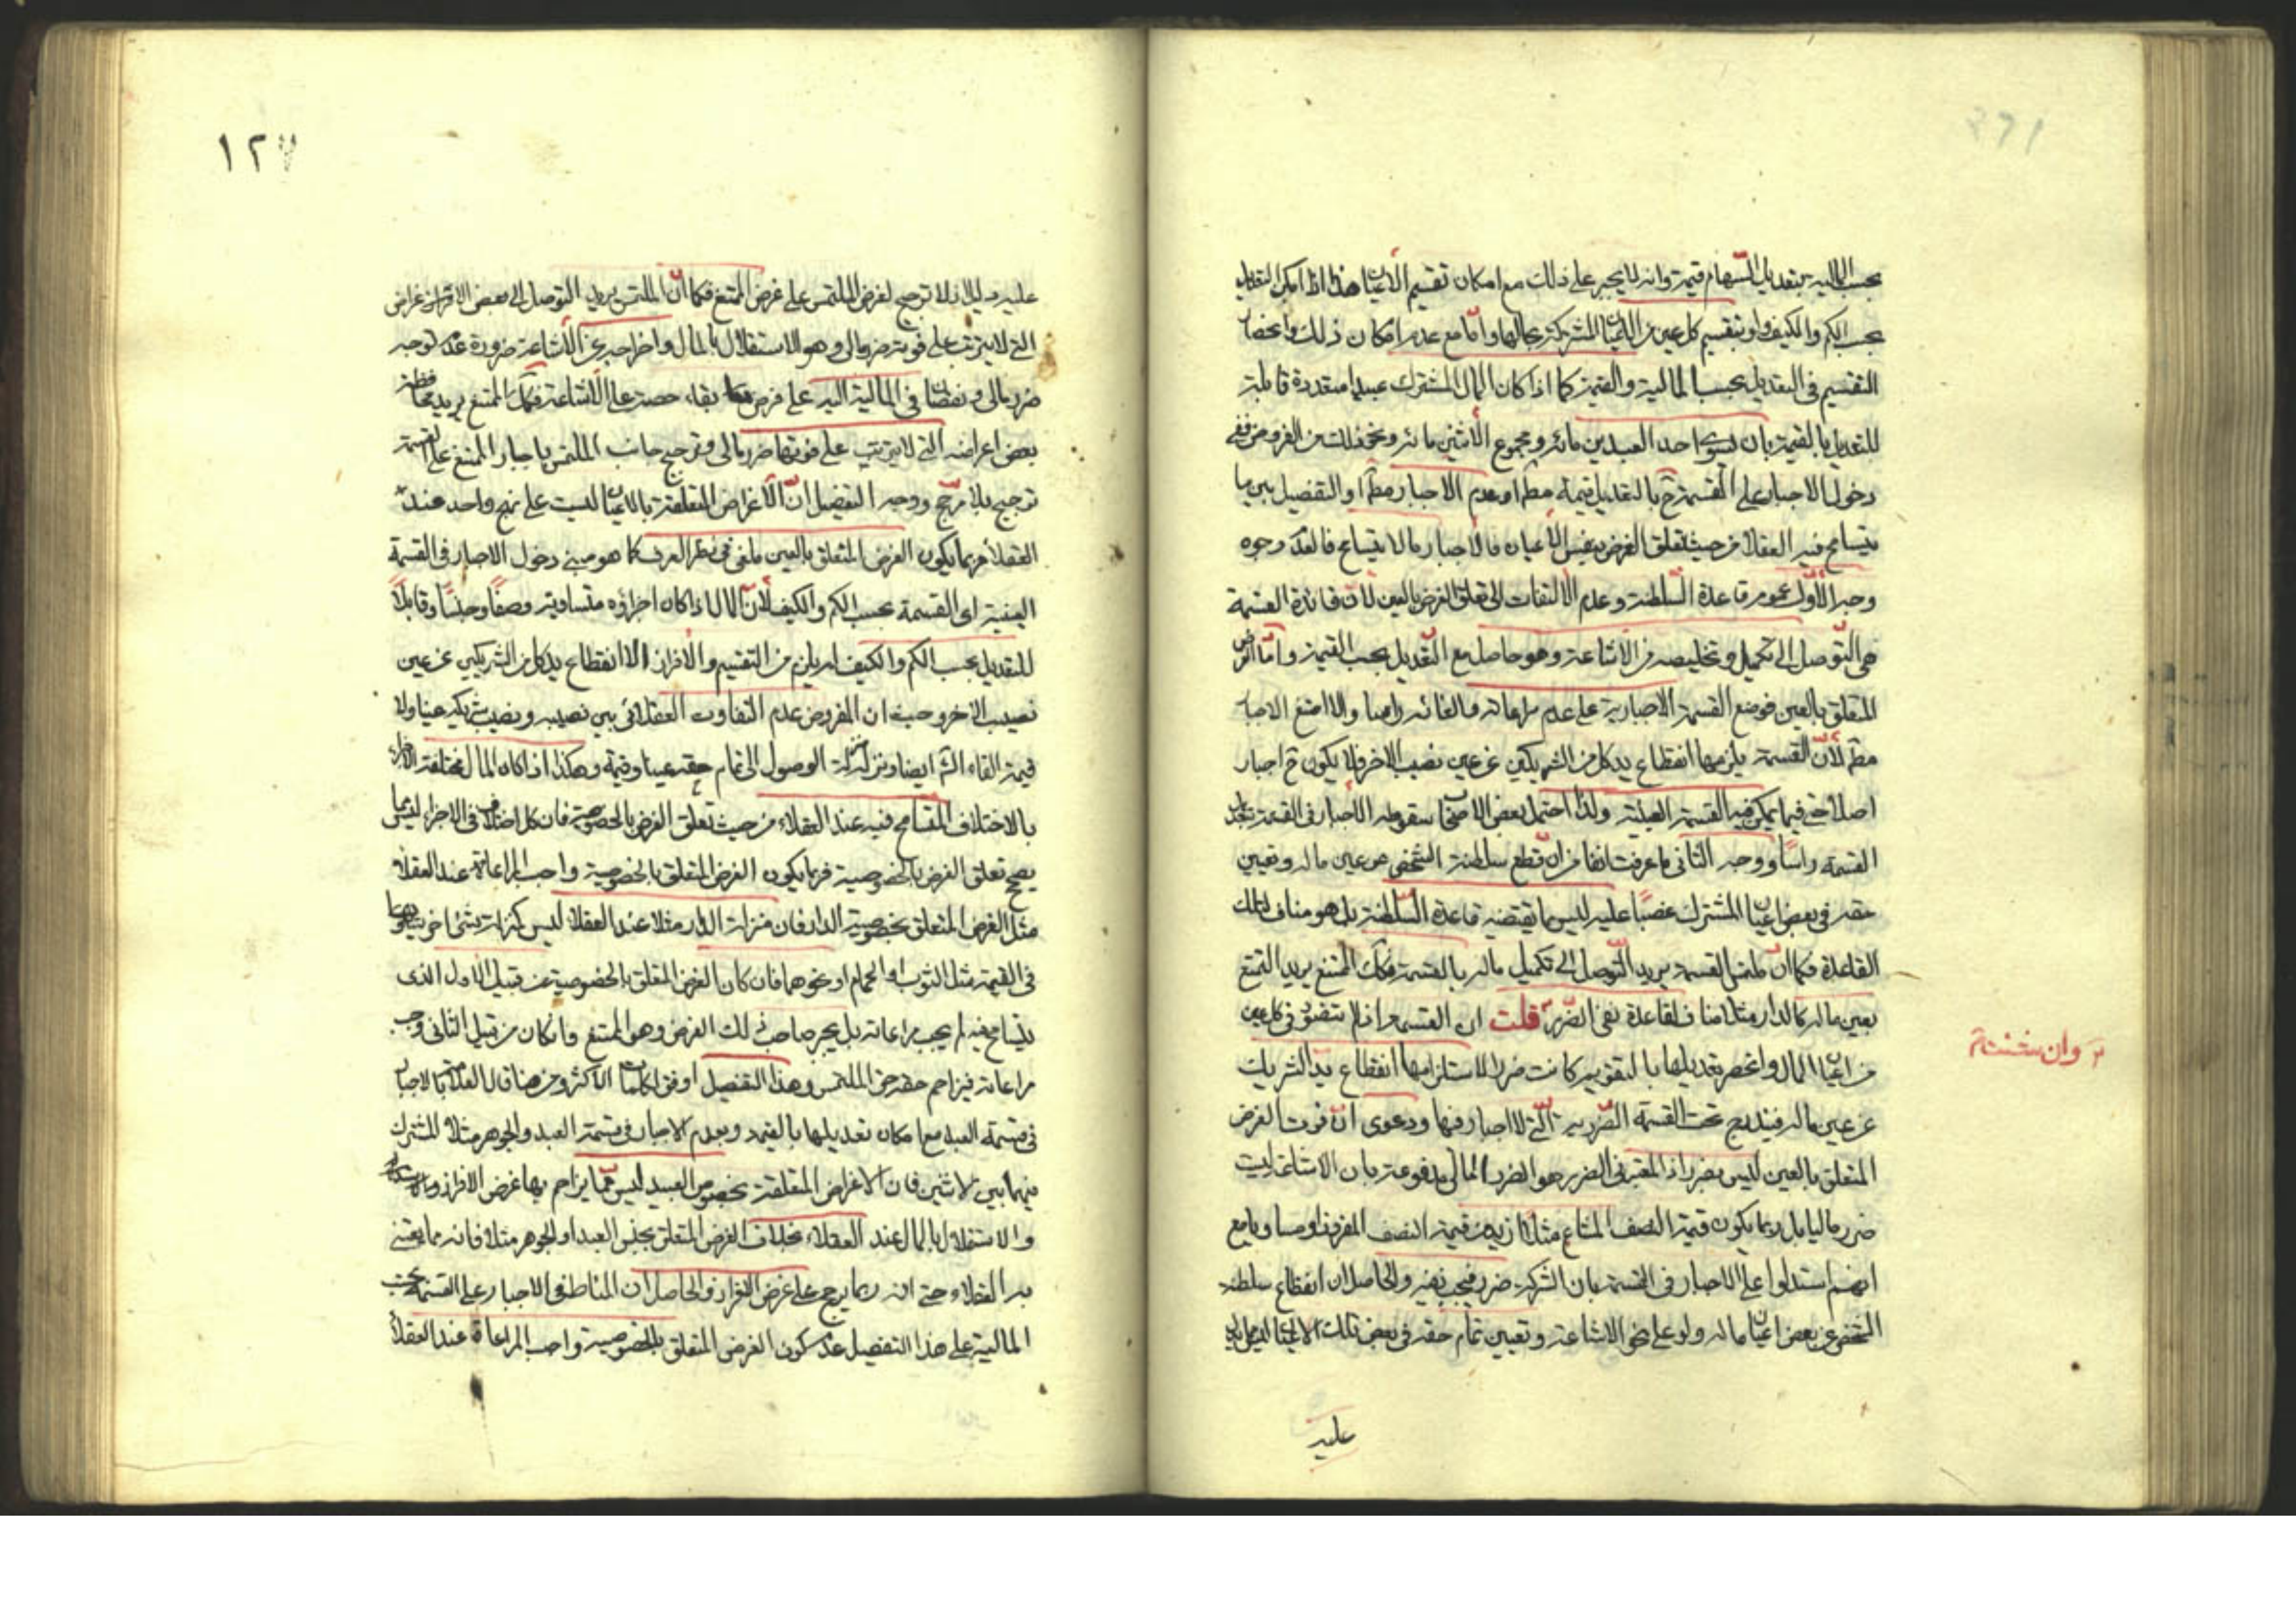 بحسب المالية بتعديل السهام قيمة وانه لا يجبر على ذلك مع امكان تقسيم الاعيان هذا اذا امكن التعديل
بحسب الكم والكيف او بتقسيم كل عين من الاعيان المشتركة بحالها واما مع عدم امكان ذلك وانحصار
التقسيم فى التعديل بحسب المالية والقيمة كما اذا كان المال المشترك عبيدا متعددة قابلة
للتعديل بالقيمة بان يسوى احد العبدين مائة ومجموع الاثنين مائة ونحو ذلك من الفروض ففى
دخول الاجبار على القسمة ح بالتعديل قيمة مط او عدم الاجبار مط او التفصيل بين ما
يتسامح فيه العقلاء من حيث تعلق الغرض بنفس الاعيان فالاجبار وما لا يتسامح فالعدم وجوه
وجه الاول عموم قاعدة السلطنة وعدم الالتفات الى تعلق الغرض بالعين لان فائدة القسمة
هى التوصل الى تكميل وتخليصه من الاشاعة وهو حاصل مع التعديل بحسب القيمة واما الغرض
المتعلق بالعين فوضع القسمة الاجبارية على عدم مراعاته والغائه راسا والا امتنع الاجبار
مط لان القسمة يلزمها انقطاع يد كل من الشريكين عن عين نصيب الاخر فلا يكون ح اجبار
اصلا حتى فيما يمكن فيه القسمة العينية ولذا احتمل بعض الاصحاب سقوط الاجبار فى القسمة
القسمة راسا ووجه الثانى ما عرفت انفا من ان قطع سلطنة الشخص عن عين ماله وتعيين
حقه فى بعض اعيان المشترك غصبا عليه ليس مما يقتضيه قاعدة السلطنة بل هو مناف لتلك
القاعدة فكما ان ملتمس القسمة يريد التوصل الى تكميل ماله بالقسمة فكك الممتنع يريد التمتع
بعين ماله كالدار مثلا مناف لقاعدة نفى الضرر قلت ان القسمة اذا لم تتفق فى كل عين
من اعيان المال وانحصر تعديلها بالتقويم كانت ضررا لاستلزامها انقطاع يد الشريك
عن عين ماله فيندرج تحت القسمة الضررية التى لا اجبار فيها ودعوى ان فوت الغرض
المتعلق بالعين ليس بضرر اذ المعتبر فى الضرر هو الضرر المالى مدفوعة بان الاشاعة ليست
ضررا ماليا بل ربما يكون قيمة النصف المشاع مثلا ازيد من قيمة النصف المفروز او مساويا مع
انهم استدلوا على الاجبار فى القسمة بان الشركة ضرر فيجب نفيه والحاصل ان انقطاع سلطنة
الشخص عن بعض اعيان ماله ولو على نحو الاشاعة وتعيين تمام حقه فى بعض تلك الاعيان
عليه
وان شئت
١٢٧
عليه دليل اذ لا ترجيح لغرض الملتمس على غرض الممتنع فكما ان الملتمس يريد التوصل الى بعض الاغراض
التى لا يترتب على فوته ضرر مالى وهو الاستقلال بالمال واخراجه عن الاشاعة ضرورة عدم توجه
ضرر مالى ونقصان فى المالية اليه على فرض بقاء حصته على الاشاعة فكك الممتنع يريد محافظة
بعض اغراضه التى لا يترتب على فوتها ضرر مالى وترجيح جانب الملتمس باجبار الممتنع على القسمة
ترجيح بلا مرجح ووجه التفصيل ان الاغراض المتعلقة بالاعيان ليست على نهج واحد عند
العقلاء فربما يكون الغرض المتعلق بالعين ملغى فى نظر العرف كما هو مبنى دخول الاجبار فى القسمة
العينية اى القسمة بحسب الكم والكيف لان المال اذا كان اجزاؤه متساوية وصفا وجنسا وقابلا
للتعديل بحسب الكم والكيف لم يلزم من التقسيم والافراز الا انقطاع يد كل من الشريكين عن عين
نصيب الاخر وحيث ان المفروض عدم التفاوت العقلائى بين نصيبه ونصيب شريكه عينا ولا
قيمة الغاه الشارع ايضا ونزله منزلة الوصول الى تمام حقه عينا وقيمة وهكذا اذا كان المال مختلفة الاجزاء
بالاختلاف المتسامح فيه عند العقلاء من حيث تعلق الغرض بالخصوصية فان كل اختلاف فى الاجزاء ليس مما
يصح تعلق الغرض بالخصوصية فربما يكون الغرض المتعلق بالخصوصية واجب المراعاة عند العقلاء
مثل الغرض المتعلق بخصوصية الدار فان منزلة الدار مثلا عند العقلاء ليس كمنزلة شئ اخر يساويها
فى القيمة مثل الثوب او الحمام او نحوهما فان كان الغرض المتعلق بالخصوصية من قبيل الاول الذى
يتسامح فيه لم يجب مراعاته بل يجبر صاحب ذلك الغرض وهو الممتنع وان كان من قبيل الثانى وجب
مراعاته فيزاحم حقه حق الملتمس وهذا التفصيل اوفق بكلمات الاكثر ومن هنا قال العلامة بالاجبار
فى قسمة العبد مع امكان تعديلها بالقيمة وبعدم الاجبار فى قسمة العبد والجوهر مثلا المشترك
فيهما بين الاثنين فان الاغراض المتعلقة بخصوص العبيد ليس مما يزاحم بها غرض الافراز
والاستقلال بالمال عند العقلاء بخلاف الغرض المتعلق بجنس العبد او الجوهر مثلا فانه مما يعتنى
به العقلاء حتى انه ربما يرجح على غرض الافراز والحاصل ان المناط فى الاجبار على القسمة بحسب
المالية على هذا التفصيل عدم كون الغرض المتعلق بالخصوصية واجب المراعاة عند العقلاء